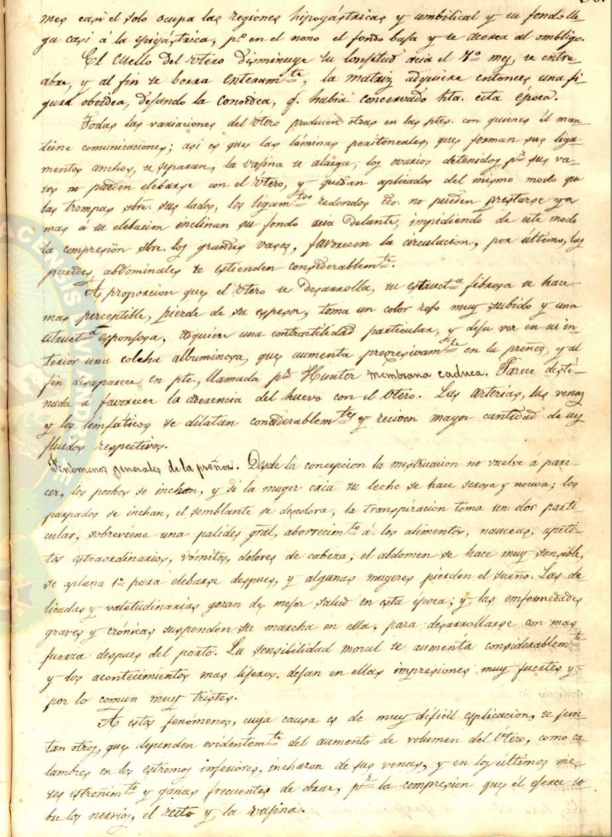 mes casi el solo ocupa las regiones hipogástricas y umbilical y su fondo lle
ga casi á la epigástrica, pº en el nono el fondo baja y se acerca al ombligo.
El Cuello del Utero disminuye su lonjitud acia el 7º mes, se entre
abre, y al fin se borra enteramte, la matriz adquiere entonces una fi
gura oboidea, dejando la conoidea, q. habia concervado hta. esta época.
Todas las variaciones del Utero producen otras en las ptes. con quienes él man
tiene comunicaciones; asi es que las láminas peritoneales, que forman sus liga
mentos anchos, se separan, la vajina se alarga, los ovarios detenidos pr. sus va
sos no pueden elebarse con el Utero, y quedan aplicados del mismo modo que
las trompas sbre. sus lados, los ligamtos redondos no pueden prestarse ya
mas á su elebacion inclinan su fondo acia delante, impidiendo de este modo
la compresion sbre. los grandes vasos, favorecen la circulacion, por ultimo, las
paredes abdominales se estienden considerablemte.
A proporcion que el Utero se desarrolla, su estructa. fibrosa se hace
mas perceptible, pierde de su espesor, toma un color rojo muy subido y una
estructa. esponjosa, adquiere una contractilidad particular, y deja ver en su in
terior una colcha albuminosa, que aumenta progresivamte. en la preñes, y al
fin desaparece en pte, llamada pr. Hunter membrana caduca. Parece desti
nada a favorecer la adesencia del huevo con el Utero. Las arterias, las venas
y los lemfáticos se dilatan considerablemte, y reciven mayor cantidad de sus
fluidos respectivos.
Fenómenos generales de la preñes. Desde la concepcion la mestruacion no vuelve a pare
cer, los pechos se inchan, y si la muger cria su leche se hace serosa y nociva; los
parpados se inchan, el semblante se descolora, la transpiracion toma un olor parti
cular, sobreviene una palides gral, aborrecimto á los alimentos, nauceas, apeti
tos estraordinarios, vómitos, dolores de cabeza; el abdomen se hace muy sensible,
se aplana 1º para elebarse despues, y algunas mugeres pierden el sueño. Las de
licadas y valetudinarias gozan de mejor salud en esta época; y las enfermedades
graves y crónicas suspenden su marcha en ella, para desarrollarse con mas
fuerza despues del parto. La sensibilidad moral se aumenta considerablemte
y los acontecimientos mas lijeros, dejan en ellas impresiones muy fuertes y
por lo comun muy tristes.
A estos fenómenos, cuya causa es de muy dificil esplicacion, se jun
tan otros, que dependen evidentemte del aumento de volumen del Utero, como ca
lambres en los estremos inferiores, inchason de sus venas, y en los ultimos me
ses estreñimto y ganas frecuentes de orar, pr. la compresion que él ejerce so
bre los nervios, el recto y la vajina.